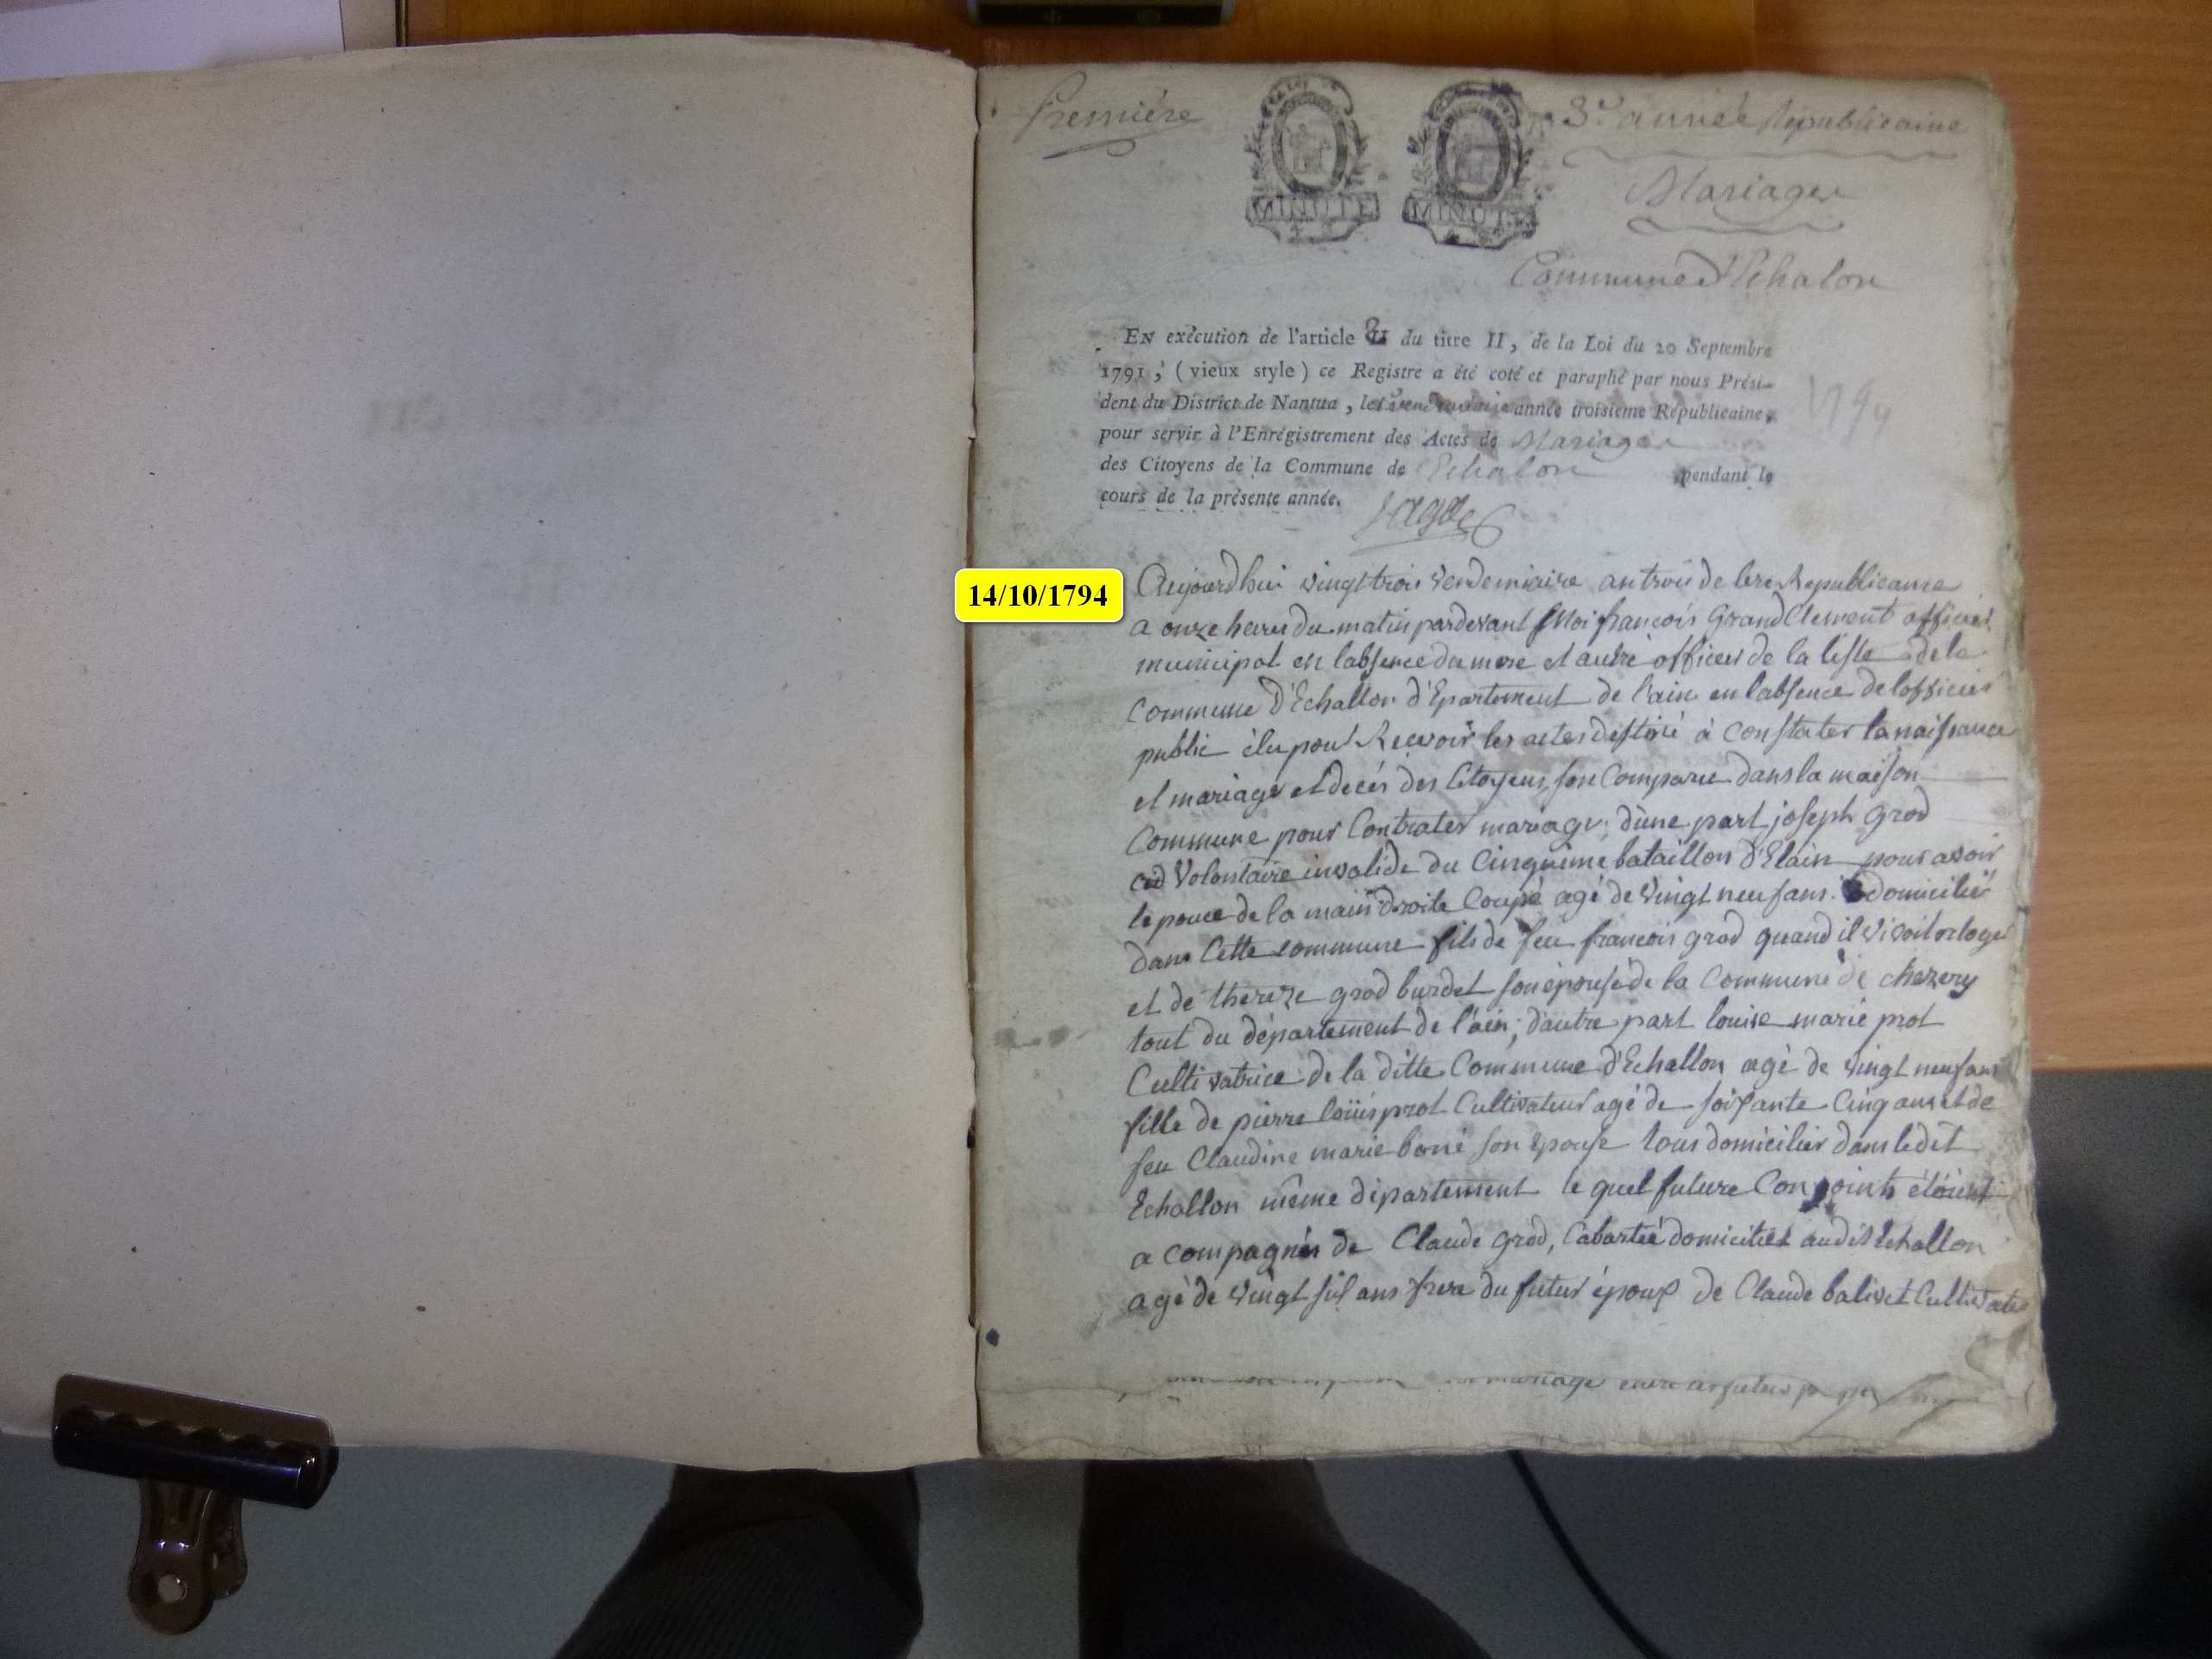 Première
MINUTE
MINUTE
3e année Républicaine
Mariages
Commune d'Echalon
EN exécution de l'article 2 du titre II, de la Loi du 20 Septembre
1791, (vieux style) ce Registre a été coté et paraphé par nous Prési-
dent du District de Nantua, le vendemiaire année troisieme Républicaine,
pour servir à l'Enrégistrement des Actes de Mariages
des Citoyens de la Commune de Echalon pendant le
cours de la présente année.
14/10/1794
Aujourdhui vingt trois Vendemiaire an trois de lere Republicaine
a onze heures du matin pardevant Moi françois Grand Clement officier
municipal en labsence du mere et autre officier de la liste de la
Commune D'Echallon d'Epartement de l'ain en labsence de lofficier
public élu pour Recevoir les actes destiné à constater la naissance
et mariage et decés des Citoyens, son Comparu dans la maison
Commune pour Contrater mariage; d'une part joseph grod
Volontaire invalide du Cinquime bataillon d'Elain pour avoir
le pouce de la main droite Coupé agé de vingt neuf ans domicilié
dans Cette commune fils de feu francois grod quand il vivoit orloger
et de thereze grod burdet son épouse de la Commune de chezery
tout du département de l'ain; d'autre part louise marie prot
Cultivatrice de la ditte Commune d'Echallon agé de vingt neuf ans
fille de pierre loüis prot Cultivateur agé de soixante Cinq ans et de
feu Claudine marie boné son épouse tous domicilier dans ledet
Echallon même département le quel future Conjoints étoient
a compagnés de Claude grod, Cabartié domicilié audit Echallon
agé de vingt six ans frere du futur époux de Claude balivet Cultivate
mariage